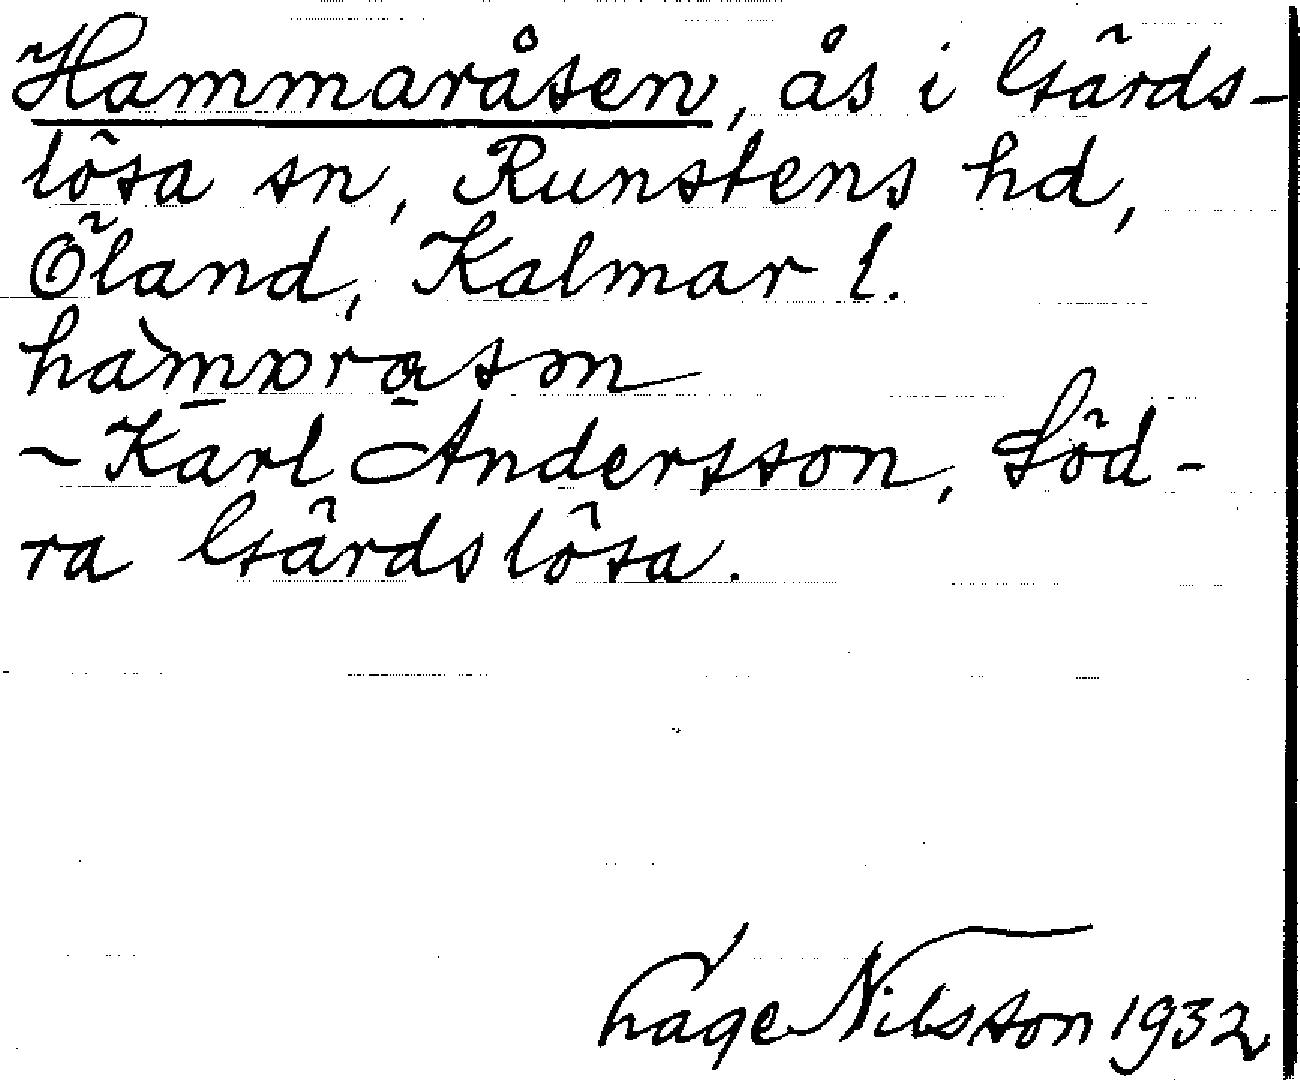 Hammaråsen, ås i Gärds-
lösa sn, Runstens hd,
Öland, Kalmar l.
~ Karl Andersson, Söd-
ra Gärdslösa.
Nilsson 1932